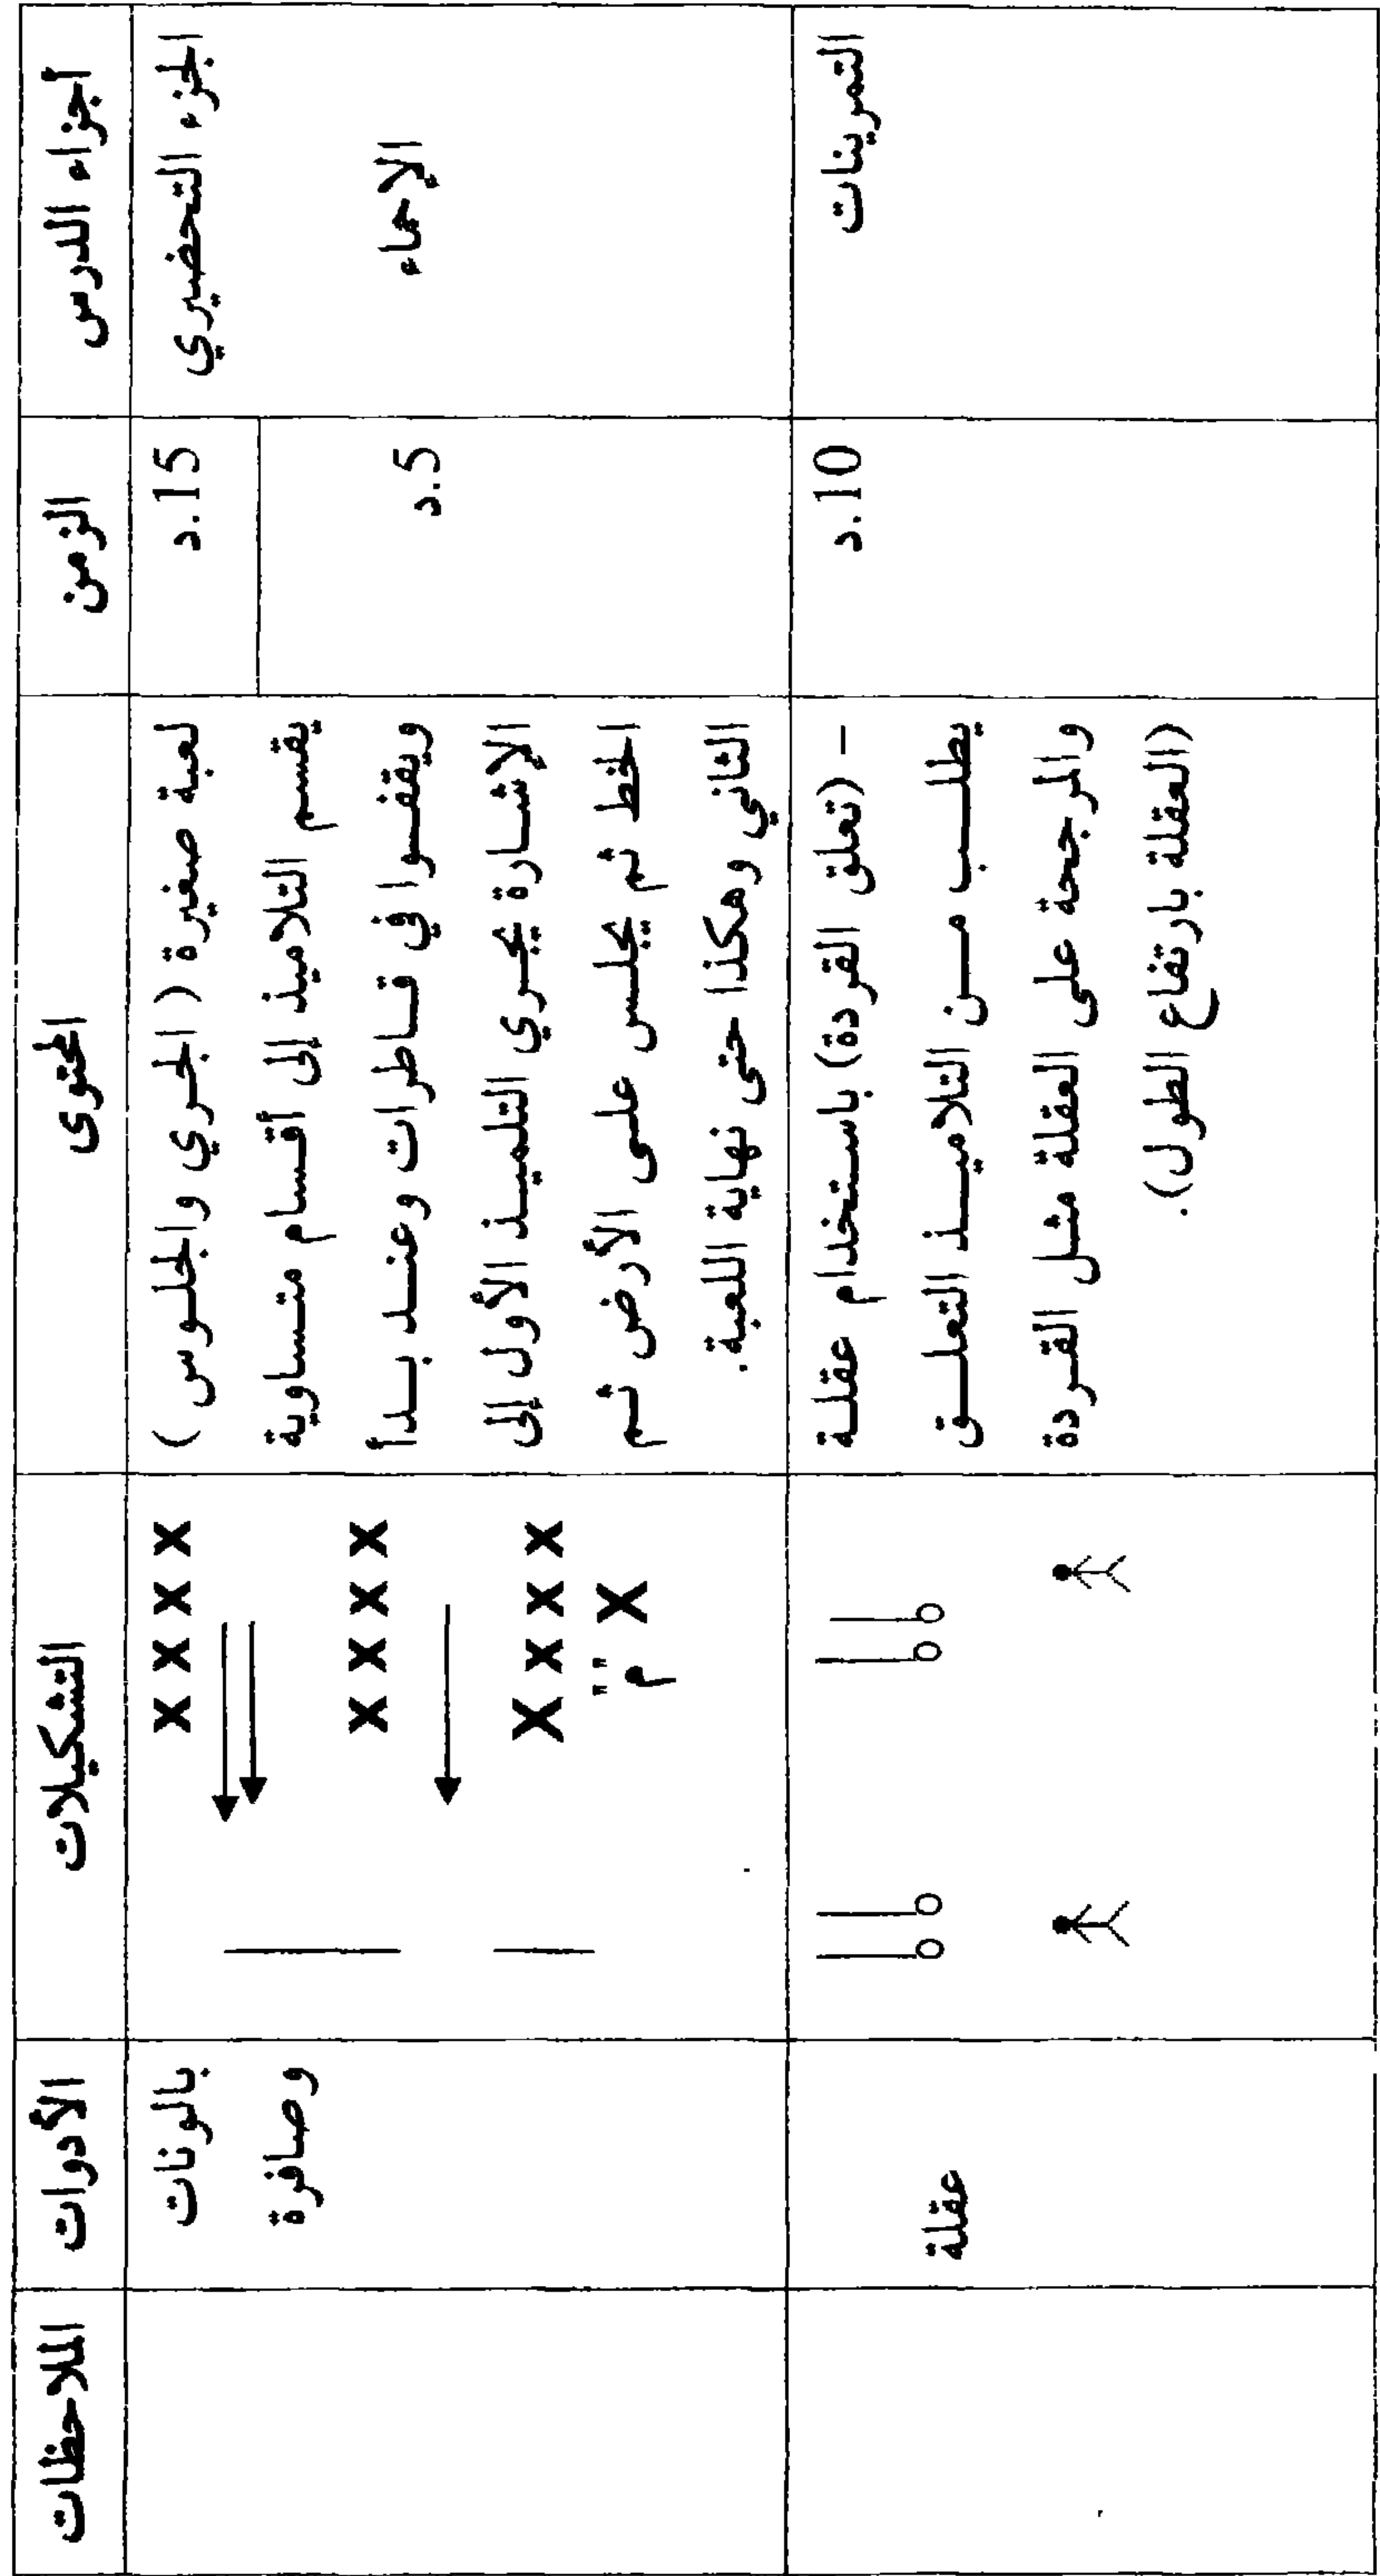 أجزاء الدرس
الزمن
المحتوى
التشكيلات
الأدوات
الملاحظات
الجزء التحضيري
الإحماء
15.د
5.د
لعبة صغيرة ( الجري والجلوس )
يقسم التلاميذ إلى أقسام متساوية
ويقفوا في قاطرات وعند بدأ
الإشارة يجري التلميذ الأول إلى
الخط ثم يجلس على الأرض ثم
الثاني وهكذا حتى نهاية اللعبة.
X X X X
X X X X
X X X X
X "م"
بالونات
وصافرة
التمرينات
10.د
– (تعلق القردة) باستخدام عقلة
يطلب من التلاميذ التعلق
والمرجحة على العقلة مثل القردة
(العقلة بارتفاع الطول).
عقلة